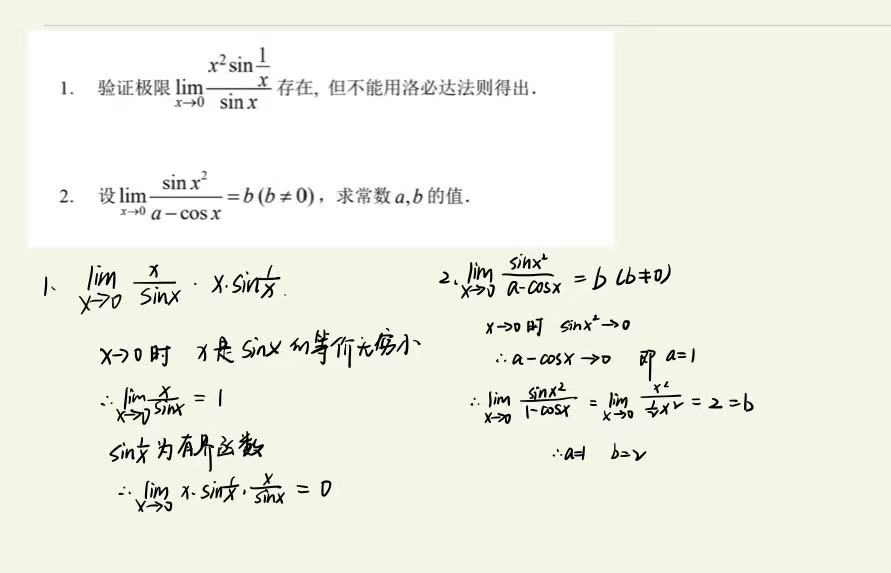 1. 验证极限 lim_{x→0} (x² sin(1/x))/(sin x) 存在, 但不能用洛必达法则得出.
2. 设 lim_{x→0} (sin x²)/(a − cos x) = b (b ≠ 0)，求常数 a,b 的值.
1、 lim_{x→0} x/sinx · x·sin(1/x).
x→0 时 x是 sinx 的等价无穷小
∴ lim_{x→0} x/sinx = 1
sin(1/x) 为有界函数
∴ lim_{x→0} x·sin(1/x)·x/sinx = 0
2、 lim_{x→0} sinx²/(a-cosx) = b (b≠0)
x→0 时 sinx²→0
∴ a-cosx→0 即 a=1
∴ lim_{x→0} sinx²/(1-cosx) = lim_{x→0} x²/(½x²) = 2 = b
∴ a=1 b=2